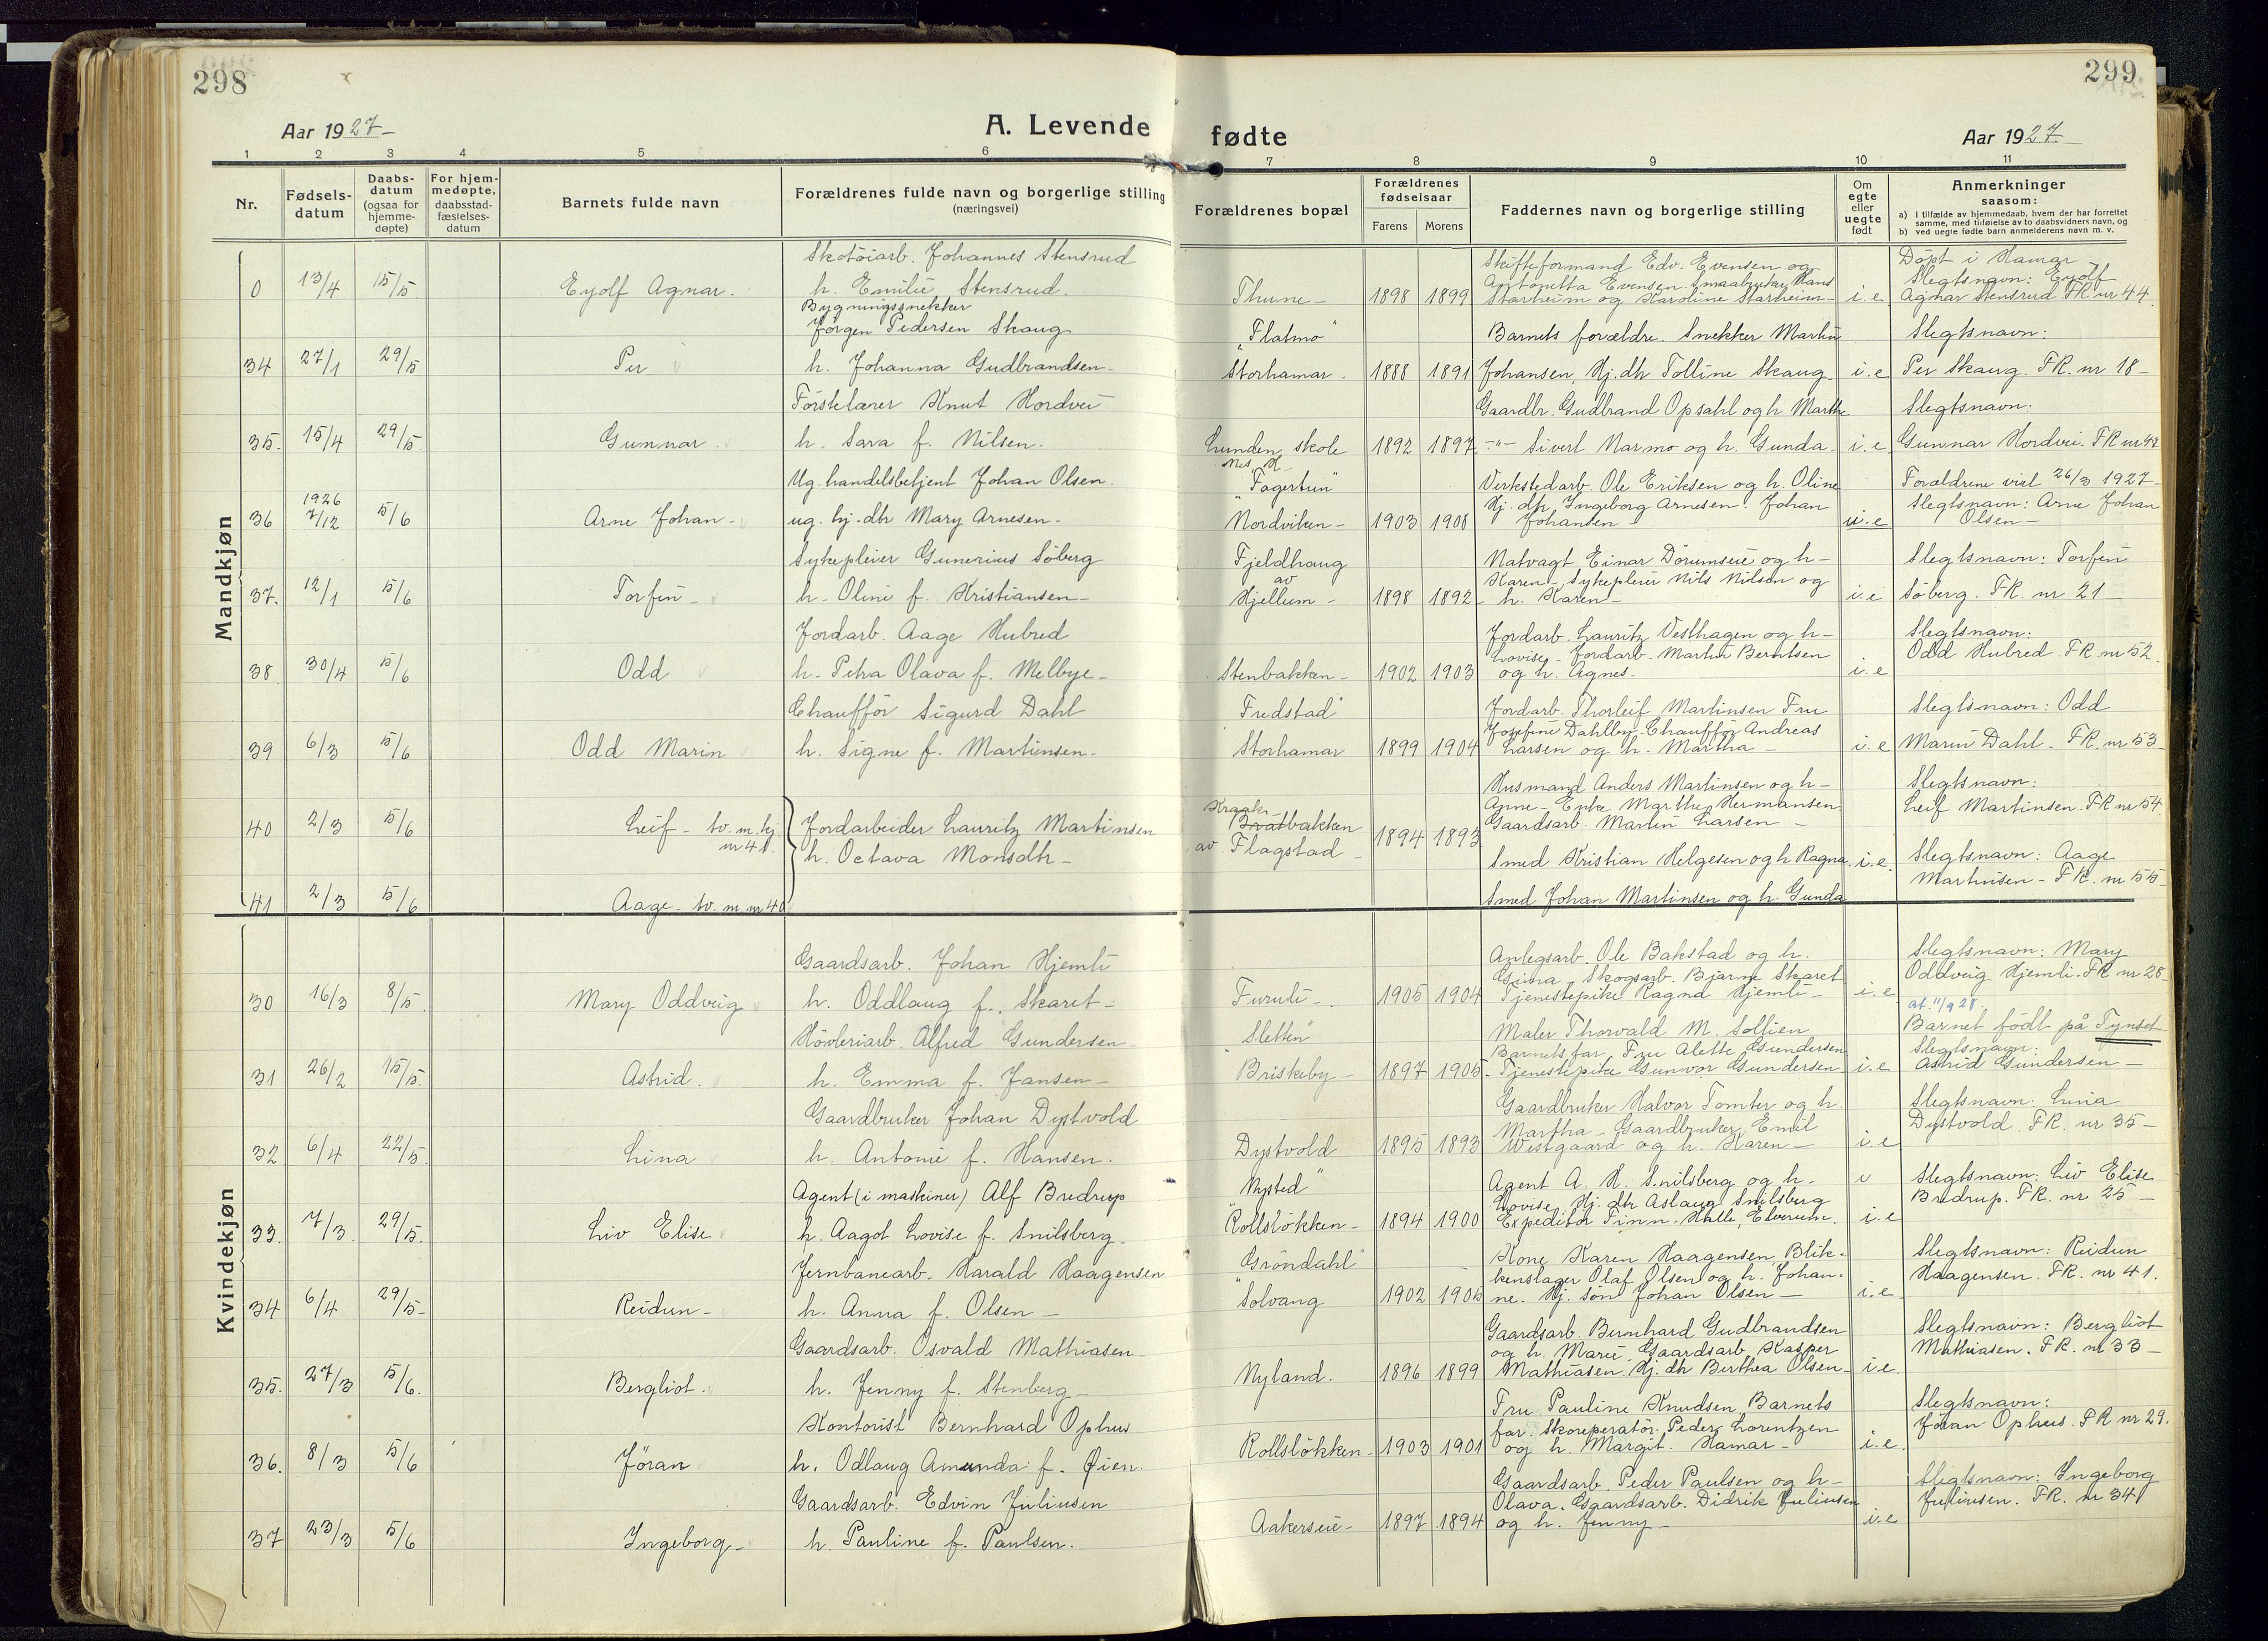 298
299
Aar 1927
A. Levende fødte
Aar 1927
1 2 3 4 5 6 7 8 9 10 11
Nr.
Fødsels-
datum
Daabs-
datum
(ogsaa for
hjemme-
døpte)
For hjem-
medøpte,
daabsstad-
fæstelses-
datum
Barnets fulde navn
Forældrenes fulde navn og borgerlige stilling
(næringsvei)
Forældrenes bopæl
Forældrenes
fødselsaar
Farens Morens
Faddernes navn og borgerlige stilling
Om
egte
eller
uegte
født
Anmerkninger
saasom:
a) i tilfælde av hjemmedaab, hvem der har forrettet
samme, med tilføielse av to daabsvidners navn, og
b) ved uegte fødte barn anmelderens navn m. v.
Mandkjøn
0 13/4 15/5 Eyolf Agnar.
Skotöiarb. Johannes Stensrud
h. Emilie Stensrud.
Thune 1898 1899
Skifteformand Edv. Evensen og
Antonetta Evensen. Smaabruker Hans
Starheim og Karoline Starheim
i.e
Döpt i Hamar
Slegtsnavn: Eyolf
Agnar Stensrud FR nr 44.
34 27/1 29/5 Per
Bygningssnekker
Jörgen Pedersen Skaug
h. Johanna Gudbrandsen
"Flatmo"
Storhamar 1888 1891
Barnets forældre. Snekker Martin
Johansen, Hj. dtr Tolline Skaug
i.e
Slegtsnavn:
Per Skaug. FR. nr 18
35. 15/4 29/5 Gunnar.
Förstelærer Knut Hordvei
h. Sara f. Nilsen.
Lunden skole
Nes H 1892 1897
Gaardbr. Gudbrand Opsahl og h Marthe
-"- Sivert Marmo og h. Gunda
i.e
Slegtsnavn:
Gunnar Hordvei. FR nr 42
36 1926 7/12 5/6 Arne Johan
Ug. handelsbetjent Johan Olsen.
ug. hj. dtr Mary Arnesen
"Fagertun"
Nordviken 1903 1908
Verkstedarb. Ole Eriksen og h. Oline
Hj. dtr Ingeborg Arnesen. Johan
Johansen
u.e
Forældrene viet 26/3 1927
Slegtsnavn: Arne Johan
Olsen
37. 12/1 5/6 Torfin
Sykepleier Gunerius Söberg
h. Oline f. Kristiansen
Fjeldhaug
av
Hjellum 1898 1892
Natvagt Einar Dörumseie og h
Karen, Sykepleier Nils Nilsen og
h. Karen
i.e
Slegtsnavn: Torfin
Söberg. FR. nr 21
38 30/4 5/6 Odd
Jordarb. Aage Hubred
h. Petra Olava f. Melbye
Stenbakken 1902 1903
Jordarb. Lauritz Vesthagen og h
Lovise. Jordarb. Martin Berntsen
og h. Agnes.
i.e
Slegtsnavn:
Odd Hubred. FR. nr 52.
39 6/3 5/6 Odd Marin
Chaufför Sigurd Dahl
h. Signe f. Martinsen
Fredstad"
Storhamar 1899 1904
Jordarb. Thorleif Martinsen Fru
Josefine Dahlby. Chaufför Andreas
Larsen og h. Martha
i.e
Slegtsnavn: Odd
Marin Dahl. FR. nr 53
40 2/3 5/6 Leif tv. m. hj
nr 41.
Jordarbeider Lauritz Martinsen
h. Octava Monsdtr
Kraak
bakken
av Flagstad 1894 1893
Husmand Anders Martinsen og h
Anne. Enke Marthe Hermansen
Gaardsarb. Martin Larsen
Slegtsnavn:
Leif Martinsen. FR nr 54
41 2/3 5/6 Aage tv. m. nr 40
Smed Kristian Helgesen og h Ragna
Smed Johan Martinsen og h. Gunda
i.e.
Slegtsnavn: Aage
Martinsen FR. nr 55
Kvindekjøn
30 16/3 8/5 Mary Oddveig
Gaardsarb. Johan Hjemli
h. Oddlaug f. Skaret
Furuli 1905 1904
Anlegsarb. Ole Bakstad og h.
Gina. Skogsarb. Bjarne Skaret
Tjenestepike Ragna Hjemli
i.e
Slegtsnavn: Mary
Oddveig Hjemli. FR nr 28
at. 11/9 28.
31 26/2 15/5 Astrid.
Hövleriarb. Alfred Gundersen
h. Emma f. Jansen
Sletten"
Briskeby 1897 1905
Maler Thorvald M. Solfien
Barnets far, Fru Alette Gundersen
Tjenestepike Gunvor Gundersen
i.e
Barnet födt på Tynset
Slegtsnavn:
Astrid Gundersen
32 6/4 22/5 Lina
Gaardbruker Johan Dystvold
h. Antonie f. Hansen.
Dystvold 1895 1893
Gaardbruker Halvor Tomter og h.
Martha Gaardbruker Emil
Westgaard og h. Karen
i.e
Slegtsnavn: Lina
Dystvold. FR. nr 35
33. 7/3 29/5. Liv Elise
Agent (i maskiner) Alf Bredrup
h. Aagot Lovise f. Snilsberg.
Nysted"
Rollslökken 1894 1900
Agent A. H. Snilsberg og h.
Lovise. Hj. dtr Aslaug Snilsberg
Expeditör Finn Halle, Elverum.
i.e
Slegtsnavn: Liv Elise
Bredrup. FR. nr 25
34 6/4 29/5 Reidun
Jernbanearb. Harald Haagensen
h. Anna f. Olsen
Gröndahl"
"Solvang 1902 1905
Kone Karen Haagensen, Blik-
kenslager Olaf Olsen og h. Johan-
ne. Hj. sön Johan Olsen
i.e
Slegtsnavn: Reidun
Haagensen. FR. nr 41.
35. 27/3 5/6. Bergliot.
Gaardsarb. Osvald Mathiasen
h. Jenny f. Stenberg
Nyland. 1896 1899
Gaardsarb. Bernhard Gudbrandsen
og h. Marie. Gaardsarb. Kasper
Mathiasen. Hj. dtr Berthea Olsen
i.e.
Slegtsnavn: Bergliot
Mathiasen. FR. nr 33
36. 8/3 5/6 Jöran
Kontorist Bernhard Ophus
h. Odlaug Amanda f. Öien.
Rollslökken 1903 1901
Fru Pauline Knudsen, Barnets
far. Skoreperatör Peder Lorentzen
og h. Margit. Hamar
i.e.
Slegtsnavn:
Jöran Ophus. FR nr 29.
37 23/3 5/6 Ingeborg
Gaardsarb. Edvin Juliusen
h. Pauline f. Paulsen.
Aakerseie 1897 1894
Gaardsarb. Peder Paulsen og h
Olava. Gaardsarb. Didrik Juliusen
og h. Jenny
i.e
Slegtsnavn: Ingeborg
Juliusen. FR. nr 34